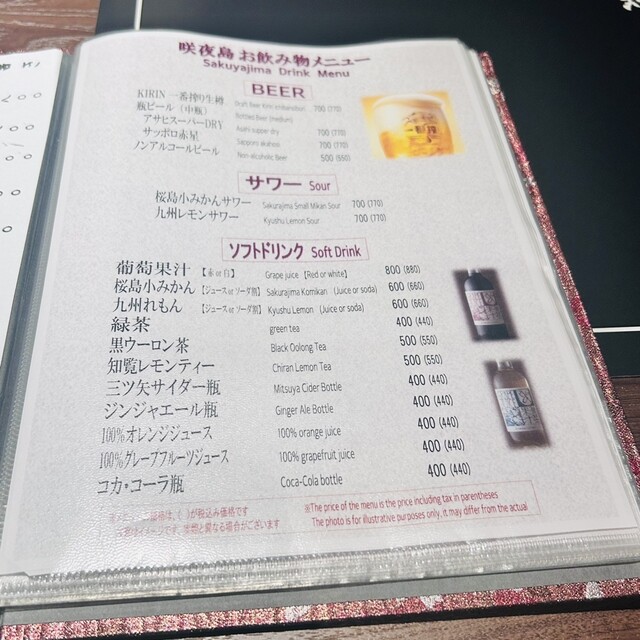 咲夜島 お飲み物メニュー
Sakuyajima Drink Menu
BEER
KIRIN 一番搾り生樽 Draft Beer Kirin Ichibanshibori 700 (770)
瓶ビール（中瓶） Bottled Beer (medium)
アサヒスーパーDRY Asahi super dry 700 (770)
サッポロ赤星 Sapporo akahosi 700 (770)
ノンアルコールビール Non-alcoholic Beer 500 (550)
サワー Sour
桜島小みかんサワー Sakurajima Small Mikan Sour 700 (770)
九州レモンサワー Kyushu Lemon Sour 700 (770)
ソフトドリンク Soft Drink
葡萄果汁 【赤 or 白】 Grape juice 【Red or white】 800 (880)
桜島小みかん 【ジュース or ソーダ割】 Sakurajima Komikan （Juice or soda) 600 (660)
九州れもん 【ジュース or ソーダ割】 Kyushu Lemon （Juice or soda) 600 (660)
緑茶 green tea 400 (440)
黒ウーロン茶 Black Oolong Tea 500 (550)
知覧レモンティー Chiran Lemon Tea 500 (550)
三ツ矢サイダー瓶 Mitsuya Cider Bottle 400 (440)
ジンジャエール瓶 Ginger Ale Bottle 400 (440)
100%オレンジジュース 100% orange juice 400 (440)
100%グレープフルーツジュース 100% grapefruit juice 400 (440)
コカ・コーラ瓶 Coca-Cola bottle 400 (440)
価格は、( )が税込み価格です
※The price of the menu is the price including tax in parentheses
イメージです、実際と異なる場合がございます
The photo is for illustrative purposes only, it may differ from the actual